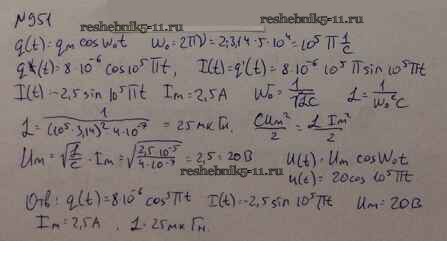 №951
reshebnik5-11.ru
q(t) = qm cos W₀t W₀ = 2πν = 2·3,14·5·10⁴ = 10⁵ π 1/с
q(t) = 8·10⁻⁶ cos 10⁵ πt, I(t) = q'(t) = 8·10⁻⁶ 10⁵ π sin 10⁵ πt
I(t) = -2,5 sin 10⁵ πt Im = 2,5 А W₀ = 1/√LC L = 1/W₀²C
L = 1/((10⁵·3,14)²·4·10⁻⁷) = 25 мкГн. CUm²/2 = L Im²/2
Um = √(L/C) · Im = √(2,5·10⁻⁵/4·10⁻⁷) = 2,5 = 20 В U(t) = Um cos W₀t
reshebnik5-11.ru
u(t) = 20 cos 10⁵ πt
Отв: q(t) = 8·10⁻⁶ cos⁵ πt I(t) = -2,5 sin 10⁵ πt Um = 20 В
Im = 2,5 А, L = 25 мкГн.
reshebnik5-11.ru